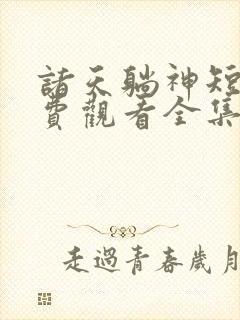 諸天躺神短
費觀看全集
走過青春歲月